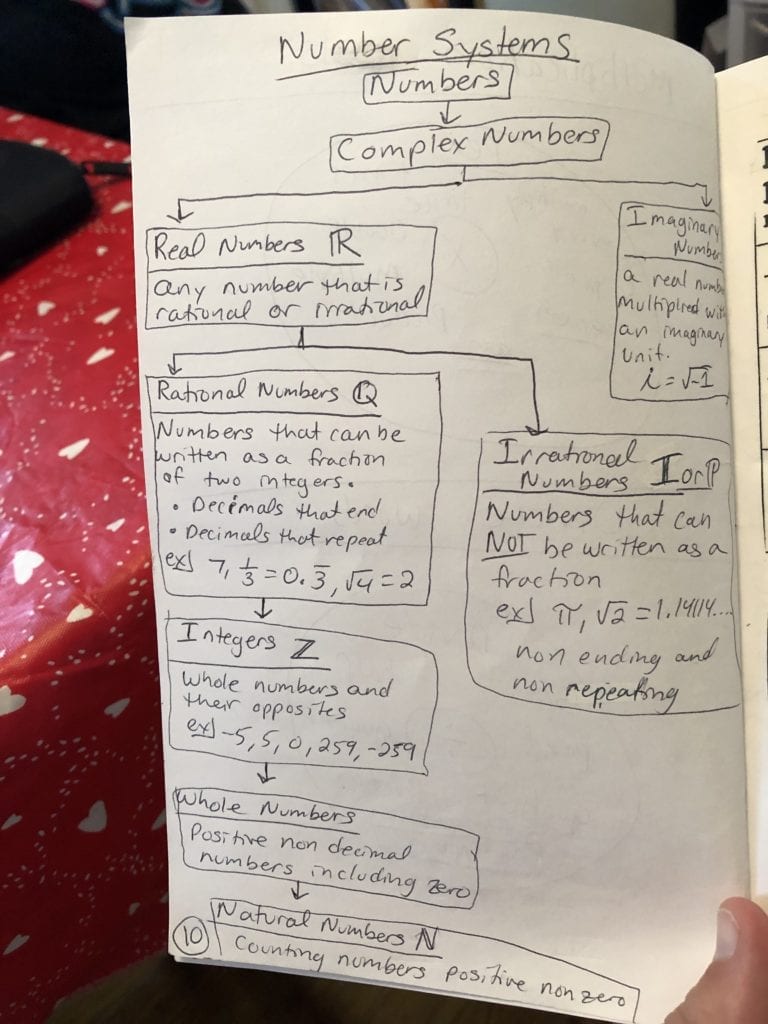 Number Systems
Numbers
Complex Numbers
Real Numbers ℝ
any number that is
rational or irrational
Imaginary
Number
a real numb
multiplied wi
an imaginary
unit.
i = √-1
Rational Numbers ℚ
Numbers that can be
written as a fraction
of two integers.
• Decimals that end
• Decimals that repeat
ex] 7, 1/3 = 0.3̅, √4 = 2
Irrational
Numbers 𝕀 or ℙ
Numbers that can
NOT be written as a
fraction
ex] π, √2 = 1.14114....
non ending and
non repeating
Integers ℤ
Whole numbers and
their opposites
ex] -5, 5, 0, 259, -259
Whole Numbers
Positive non decimal
numbers including zero
Natural Numbers ℕ
Counting numbers positive non zero
10